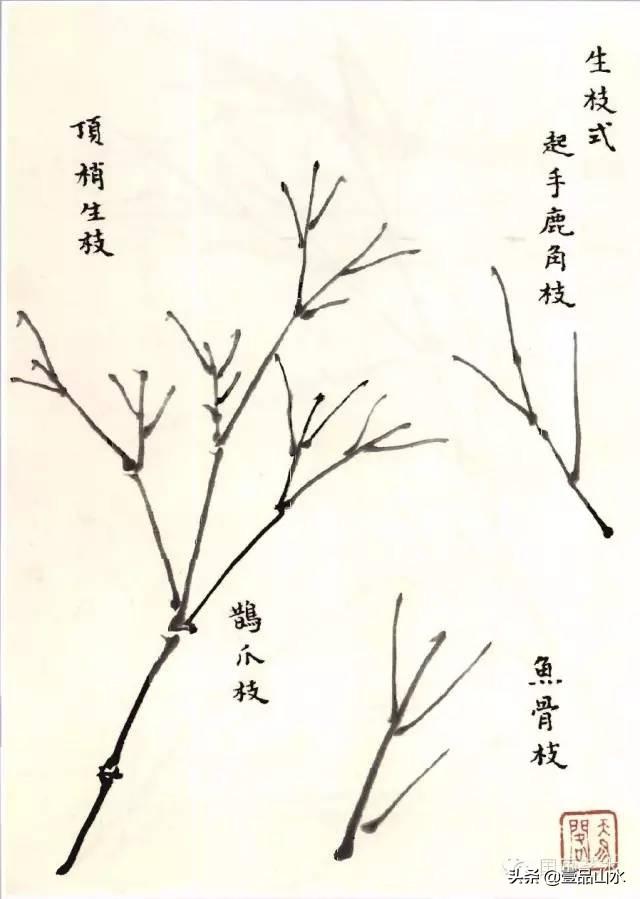 生枝式
起手鹿角枝
頂梢生枝
鵲爪枝
魚骨枝
头条 @壹品山水